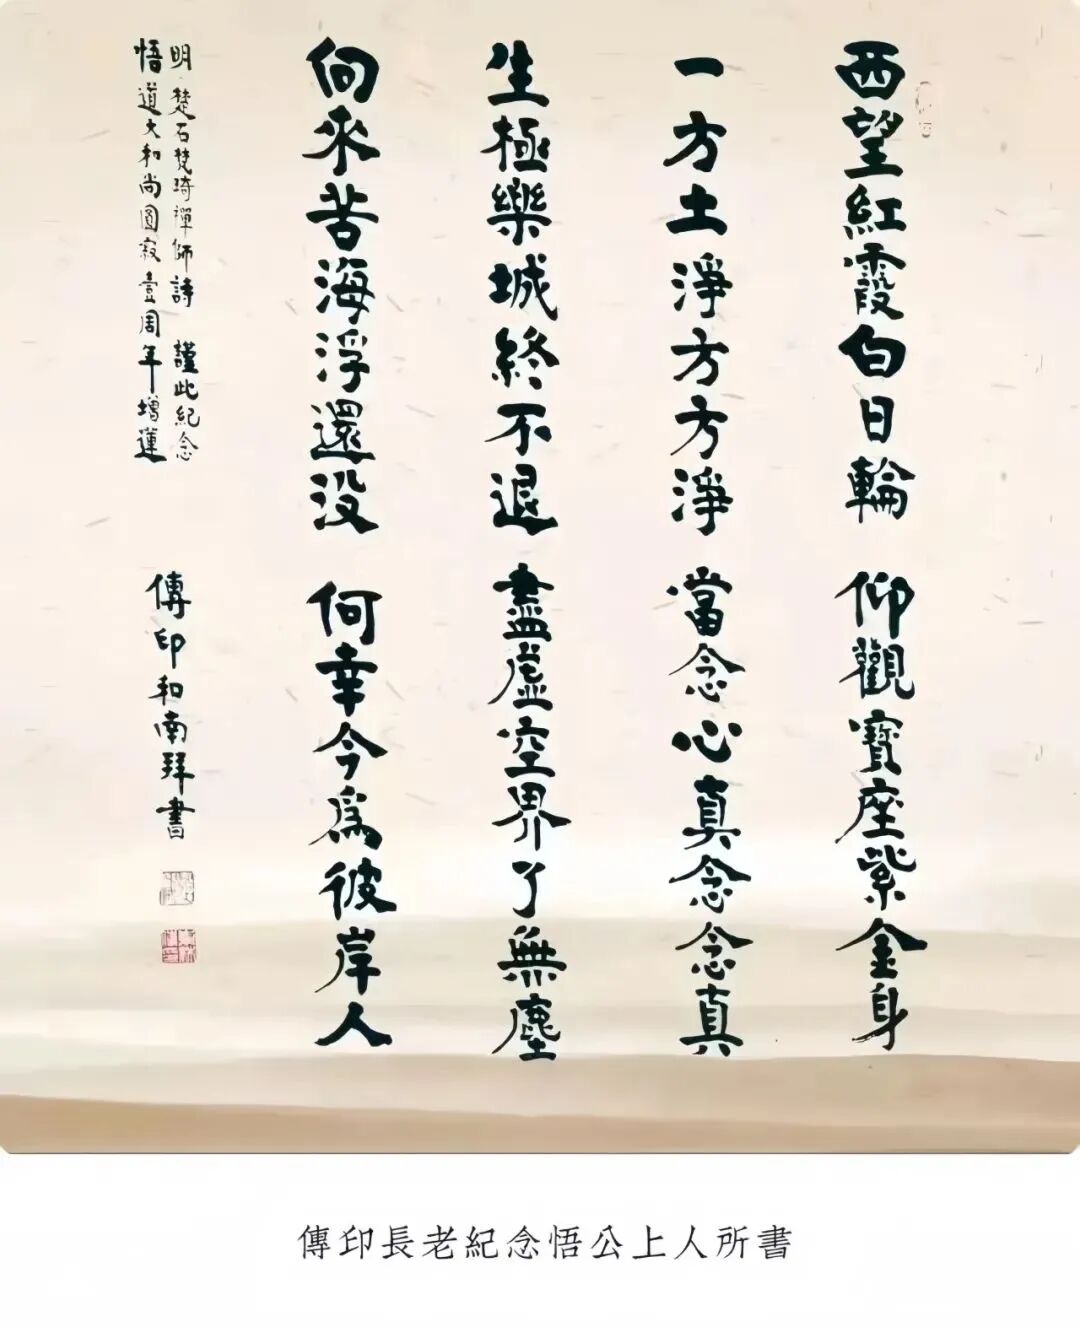 西望紅霞白日輪　仰觀寶座紫金身
一方土淨方方淨　當念心真念念真
生極樂城終不退　盡虛空界了無塵
向來苦海浮還没　何幸今為彼岸人
明　楚石梵琦禪師詩　謹此紀念
悟道大和尚圓寂壹周年增蓮
傳印和南拜書
傳印長老紀念悟公上人所書